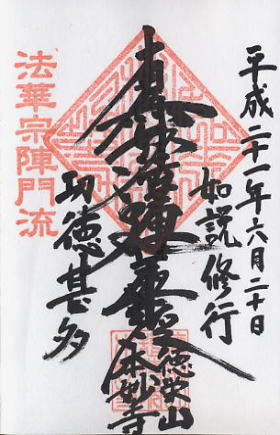 平成二十一年六月二十日
如説修行
南無妙法蓮華経
功徳甚多
法華宗陣門流
徳栄山
本妙寺